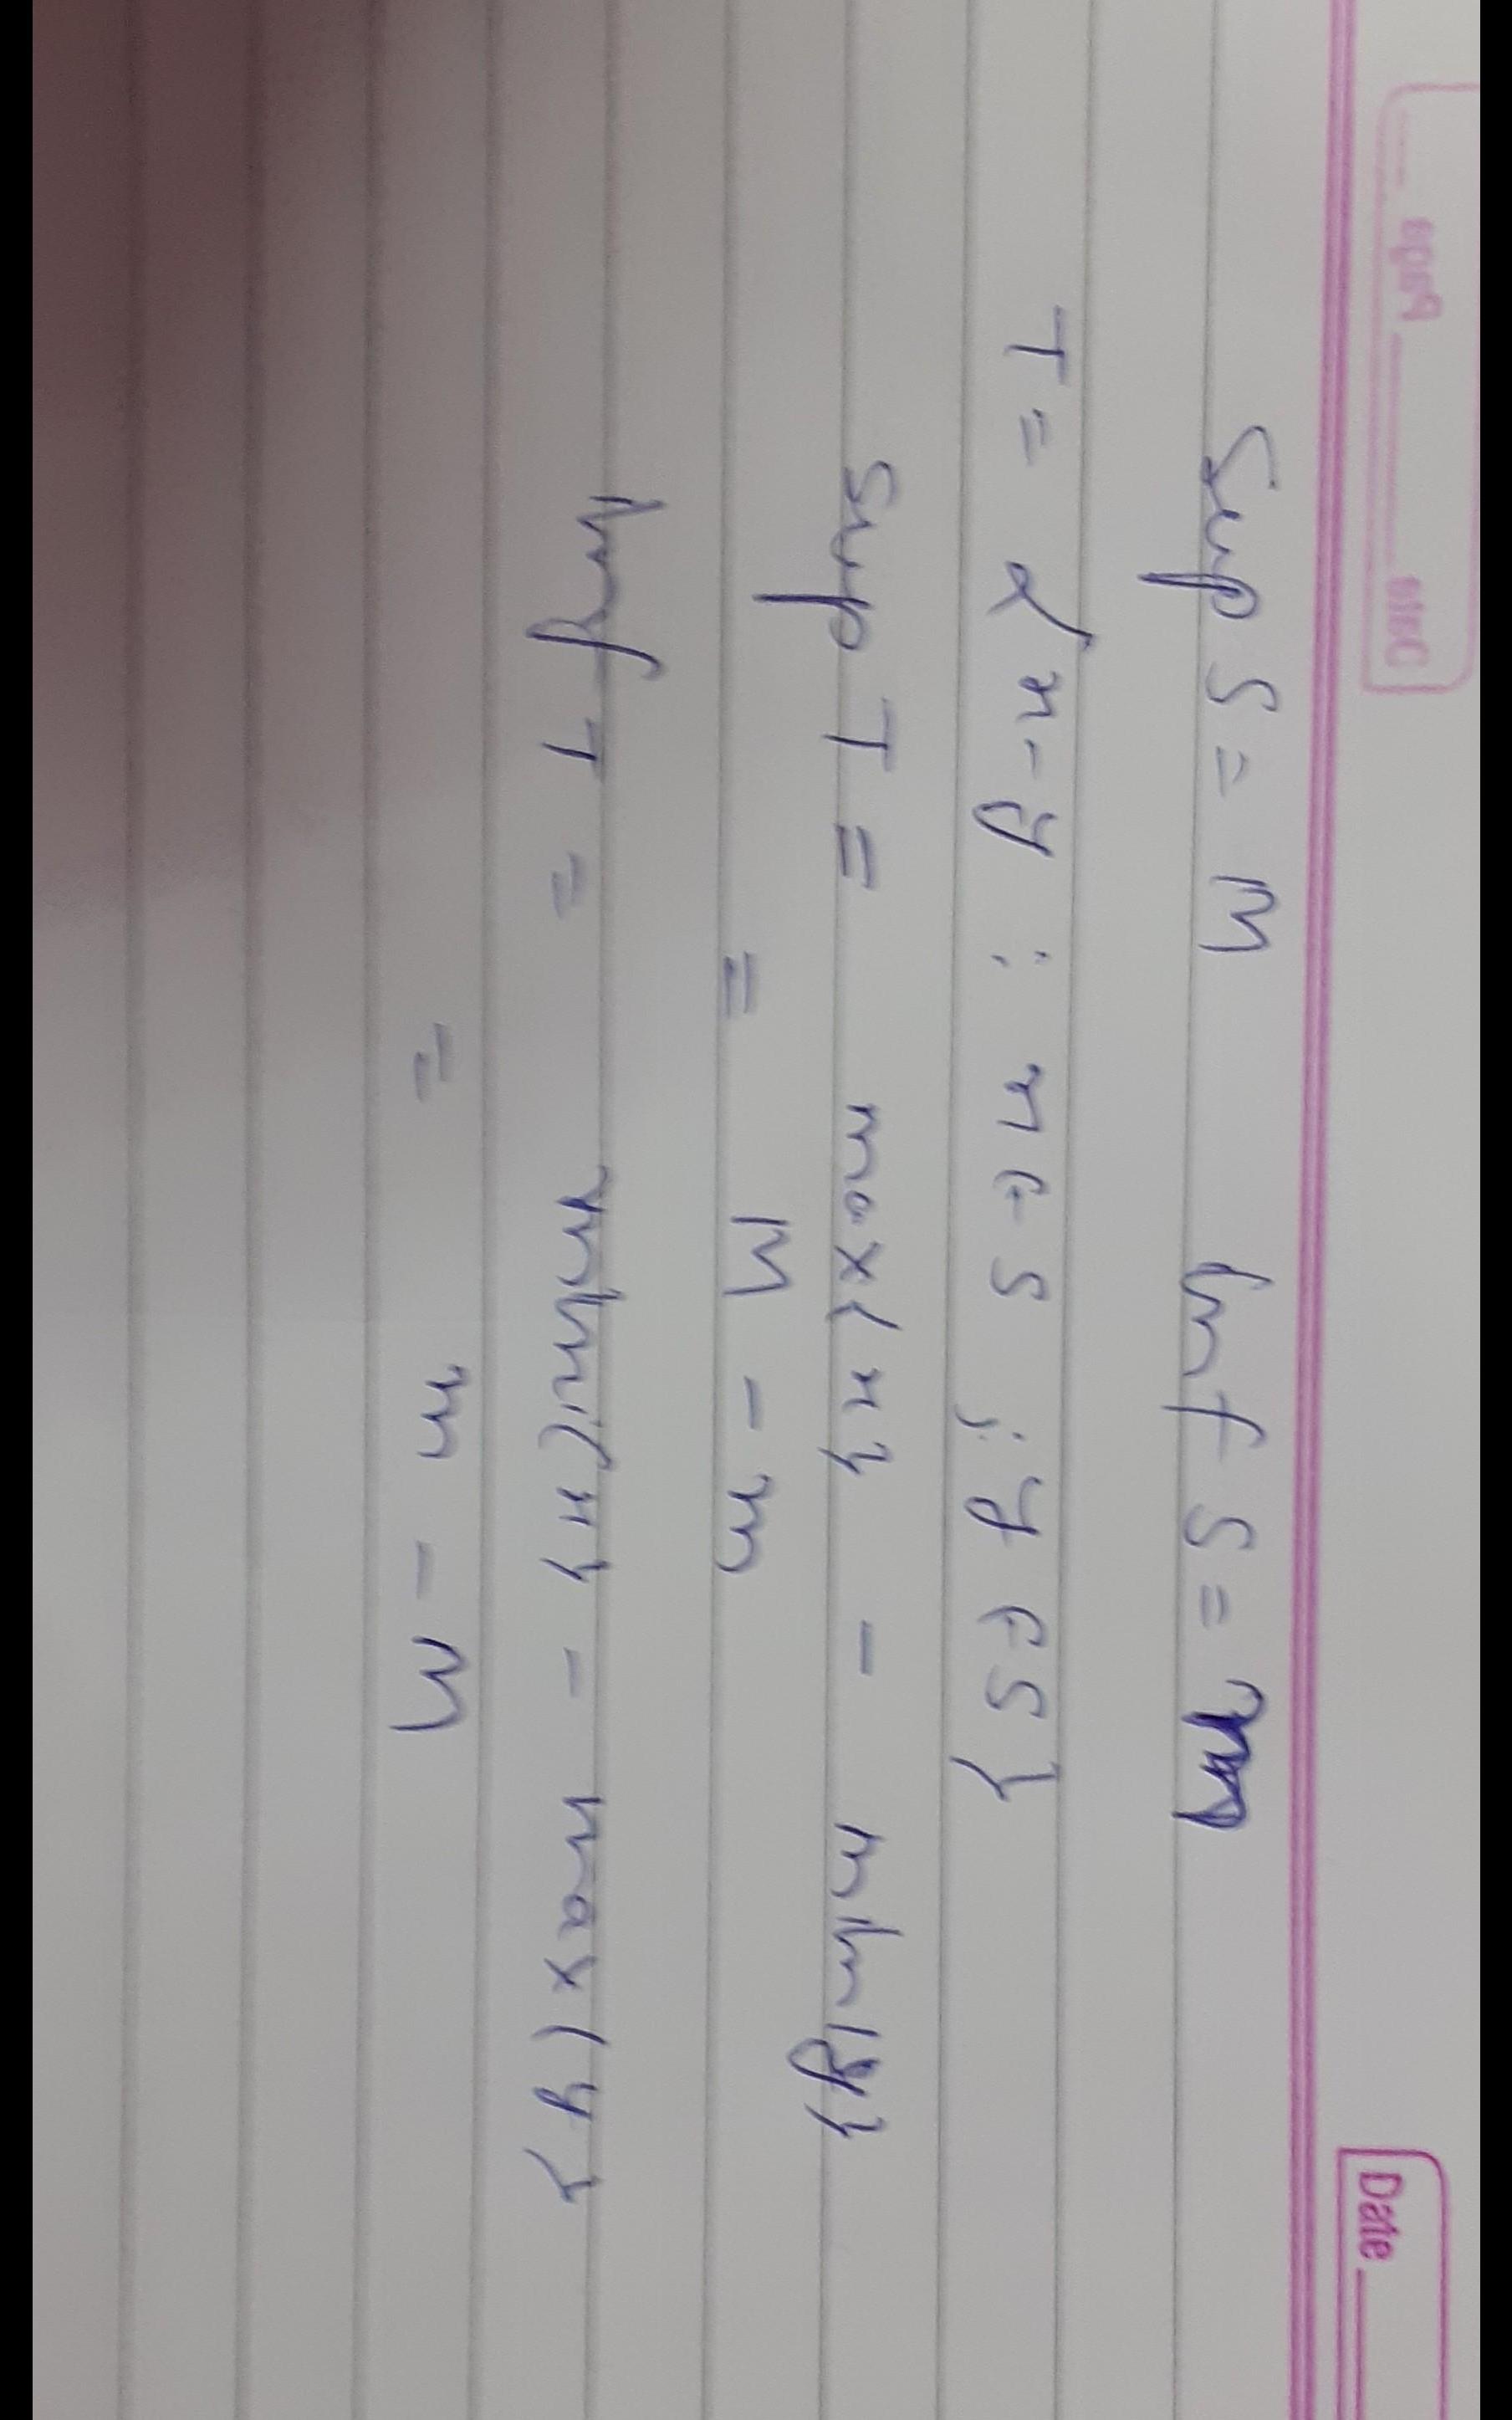 Page
Date
Date
Sup S = M Inf S = m
T = { x - y ; x ∈ S ; y ∈ S }
Sup T = max{x} - min{y}
= M - m
Inf T = min{x} - max{y}
= m - M